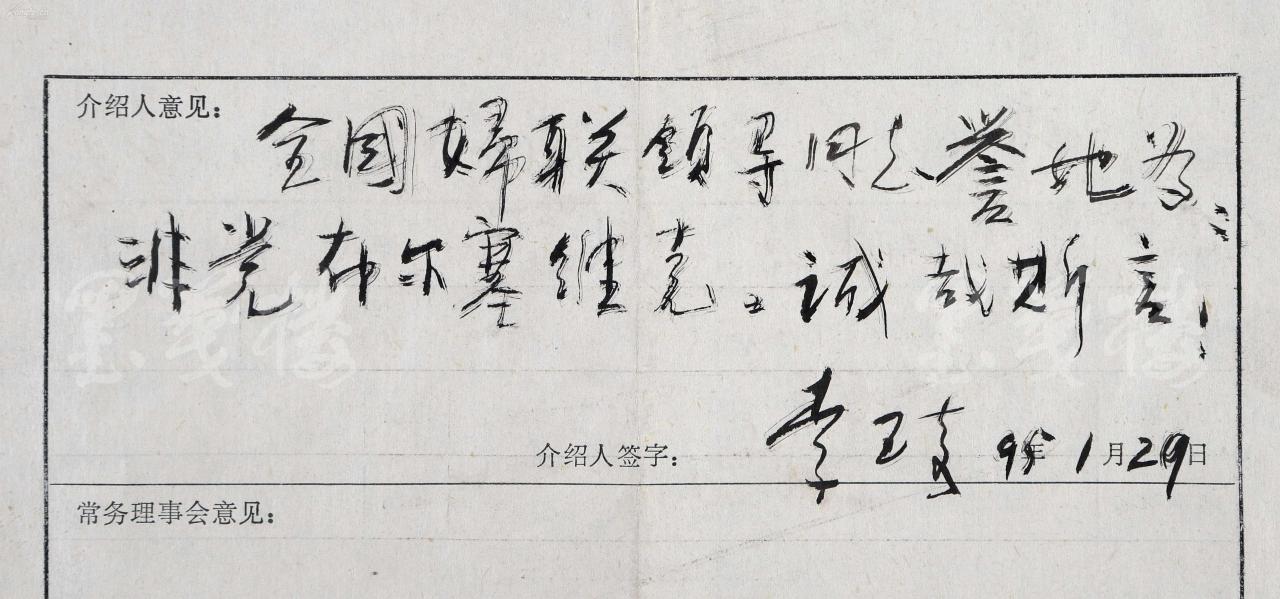 介绍人意见：
全国婦联領导同志誉她为：
非党布尔塞维克。诚哉斯言！
介绍人签字： 李琦 95年1月29日
常务理事会意见：
墨笺楼 墨笺楼